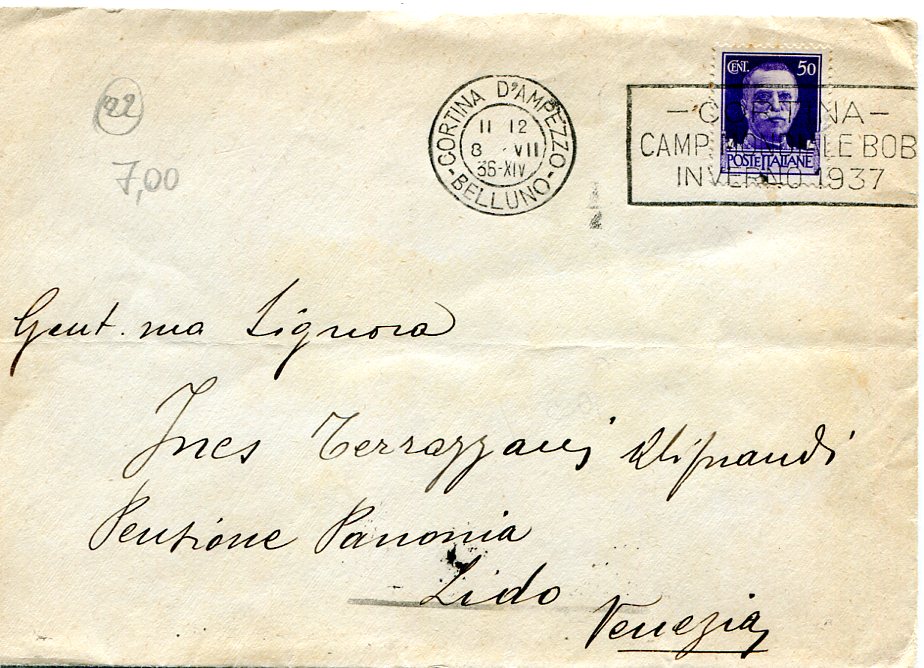 22
7,00
CORTINA D'AMPEZZO
11 12
8 VII
36-XIV
-BELLUNO-
CENT. 50
POSTE ITALIANE
CAMP
LE BOB
INVERNO 1937
Gent.ma Signora
Ines Terrazzani
Pensione Panonia
Lido
Venezia